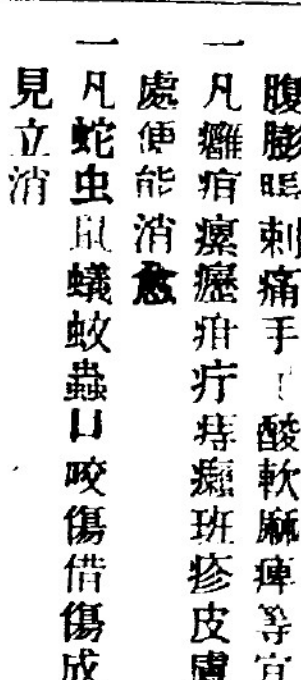 腹膨眼刺痛手酸軟麻痺等宜
一凡癰疳瘰癧疳疔痔癍班疹皮膚
處便能消愈
一凡蛇虫鼠蟻蚊蟲口咬傷借傷成
見立消